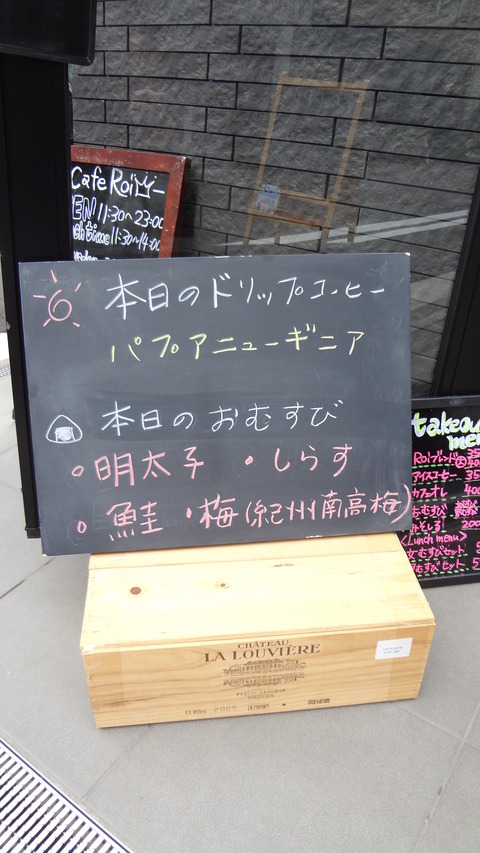 Cafe Roi
EN 11:30~23:00
ch time 11:30~14:00
本日のドリップコーヒー
パプアニューギニア
本日のおむすび
・明太子 ・しらす
・鮭 ・梅(紀州南高梅)
takeou
me
Roiブレンド
アイスコーヒー 35
カフェオレ 400
おむすび
みそしる 200
<Lunch menu>
むすびセット
むすびセット
CHÂTEAU
LA LOUVIÈRE
2005